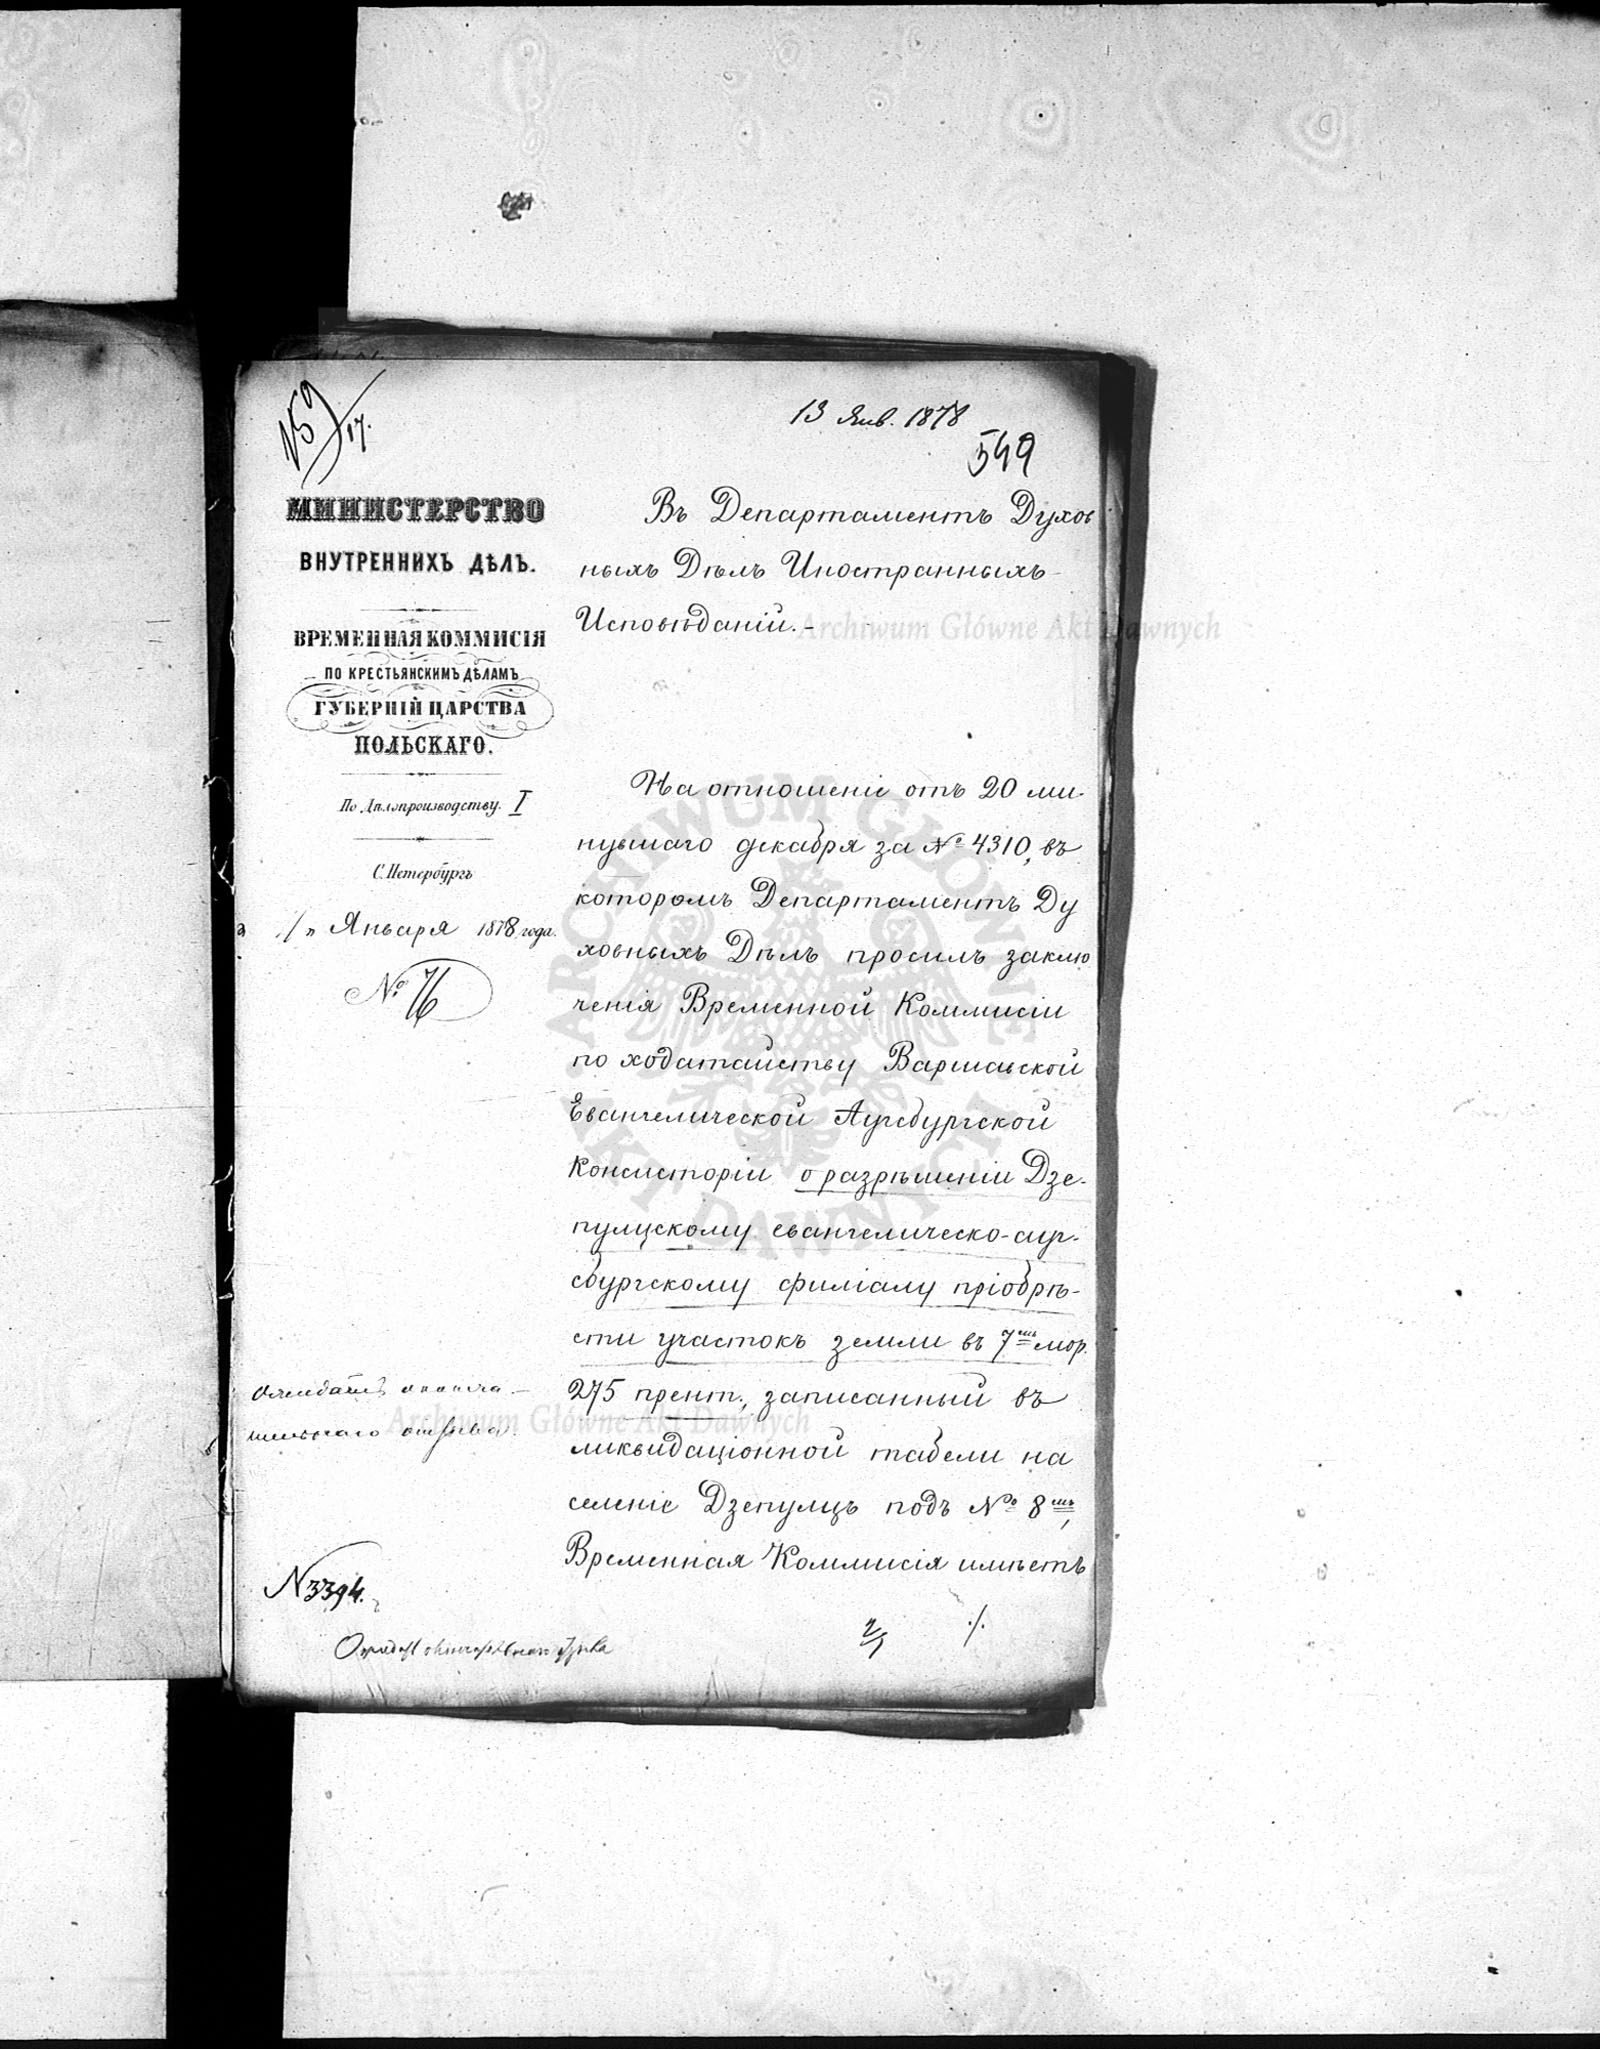 № 59/17.
13 Янв. 1878
549
МИНИСТЕРСТВО
ВНУТРЕННИХЪ ДѢЛЪ.
ВРЕМЕННАЯ КОММИСІЯ
ПО КРЕСТЬЯНСКИМЪ ДѢЛАМЪ
ГУБЕРНІЙ ЦАРСТВА
ПОЛЬСКАГО.
По Дѣлопроизводству. I
С. Петербургъ
Января 1878 года.
№ 76
Въ Департаментъ Духов
ныхъ Дѣлъ Иностранныхъ
Исповѣданій.
На отношеніе отъ 20 ми-
нувшаго декабря за № 4310, въ
которомъ Департаментъ Ду
ховныхъ Дѣлъ просилъ заклю
ченія Временной Коммисіи
по ходатайству Варшавской
Евангелической Аугсбургской
Консисторіи о разрѣшеніи Дзе-
пулцскому евангелическо-ауг-
сбургскому филіалу пріобрѣ-
сти участокъ земли въ 7 мор.
275 прент., записанный въ
ликвидаціонной табели на
селеніе Дзепулцъ подъ № 8мъ,
Временная Коммисія имѣетъ
Ожидать оконча-
тельнаго отзыва.
N 3394.
./.
Archiwum Główne Akt Dawnych
ARCHIWUM GŁÓWNE AKT DAWNYCH
Archiwum Główne Akt Dawnych